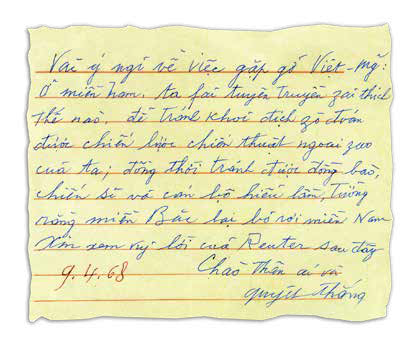 Vài ý ngĩ về việc gặp gỡ Việt-Mỹ:
Ở miền Nam, ta fải tuyên truyền zải thích
thế nào, để tránh khỏi địch zò đoán
được chiến lược chiến thuật ngoại zao
của ta; đồng thời tránh được đồng bào,
chiến sĩ và cán bộ hiểu lầm, tưởng
rằng miền Bắc lại bỏ rơi miền Nam
Xin xem vài lời của Reuter sau đây
9.4.68 Chào thân ái và
quyết thắng